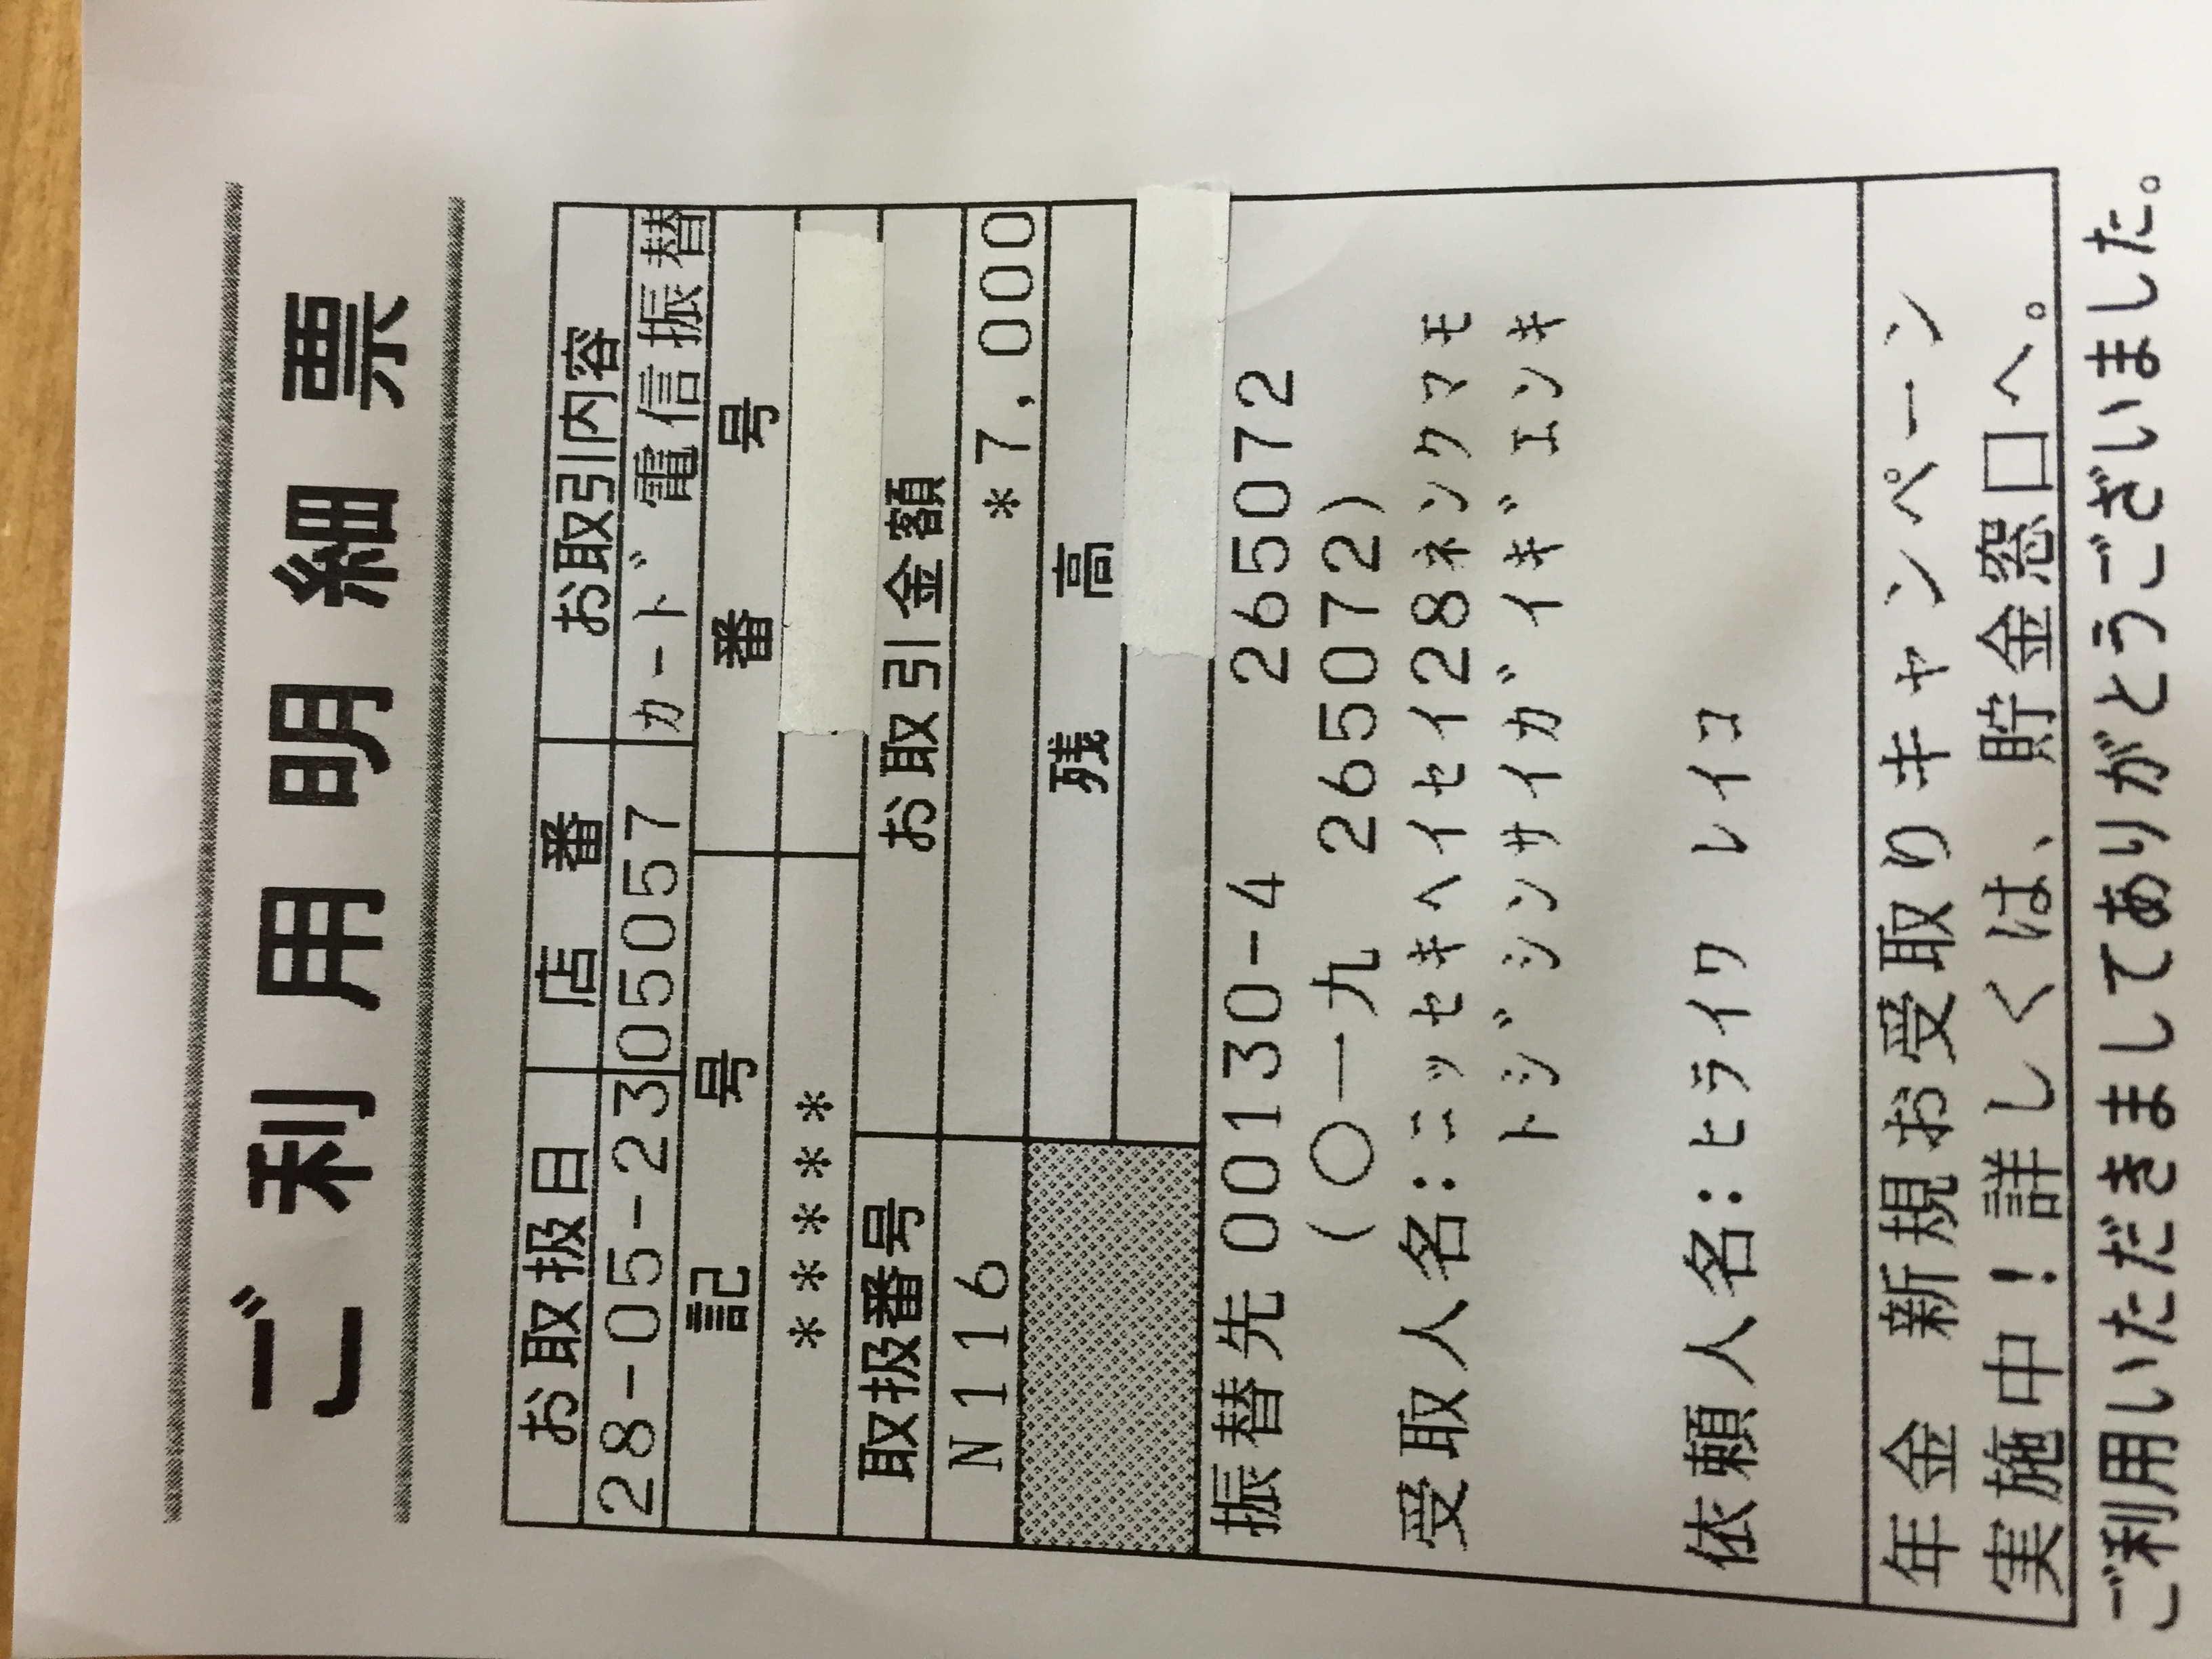 ご利用明細票
お取扱日 店番 お取引内容
28-05-23 05057 カード 電信振替
記号 番号
*****
取扱番号 お取引金額
N116 *7,000
残高
振替先 00130-4 265072
(〇一九 265072)
受取人名:ニッセキヘイセイ28ネンクマモ
トジシンサイガイギエンキ
依頼人名:ヒライワ レイコ
年金 新規お受取りキャンペーン
実施中!詳しくは、貯金窓口へ。
ご利用いただきましてありがとうございました。